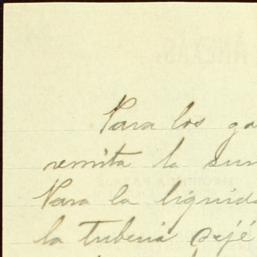 Para los ga
remita la sum
Para la liquida
la tuberia dejé